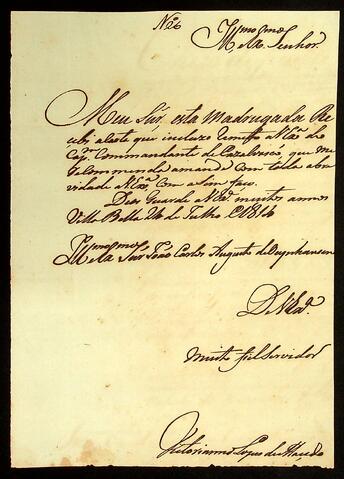 N.º 6
Ill.mo Ex.mo Senhor
Meu Sñr, esta Madrugada Re
cebi a carta que incluzo remetto a V.Ex.a do
Cap.m Commandante de Cazalvasco, que me
recomenda a mande com toda a bre
vidade a V.Ex.a, como asim faço.
Deos Guarde a V.Ex.a muitos annos
Villa Bella 24 de Julho e 1814
Ill.mo Ex.mo Snr João Carlos Augusto de Oeynhausen
De V.Ex.a
Muito fiel Servidor
Victorianno Lopes de Macedo